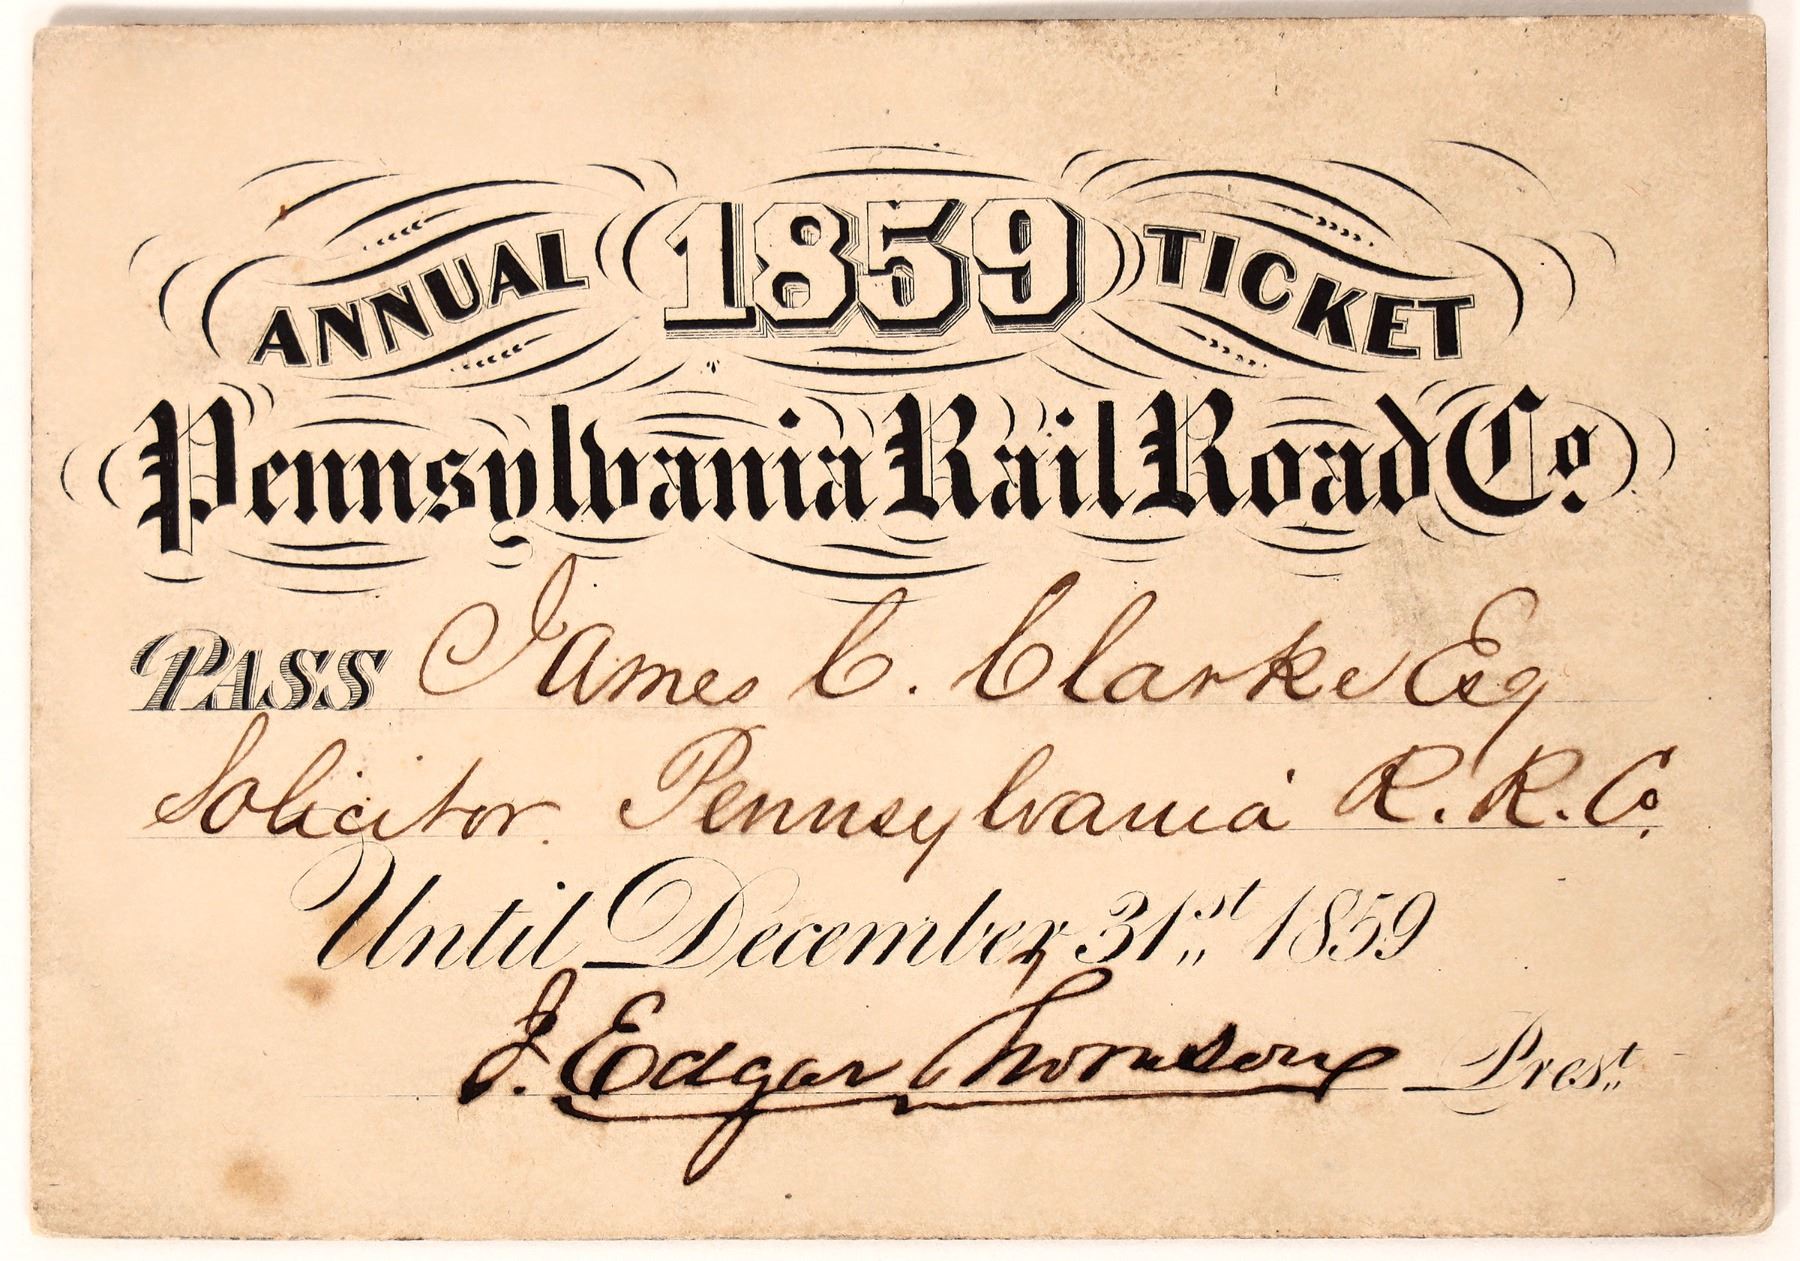 ANNUAL 1859 TICKET
Pennsylvania Rail Road Co.
PASS James C. Clarke Esq
Solicitor Pennsylvania R. R. Co.
Until December 31st 1859
J. Edgar Thomson Prest